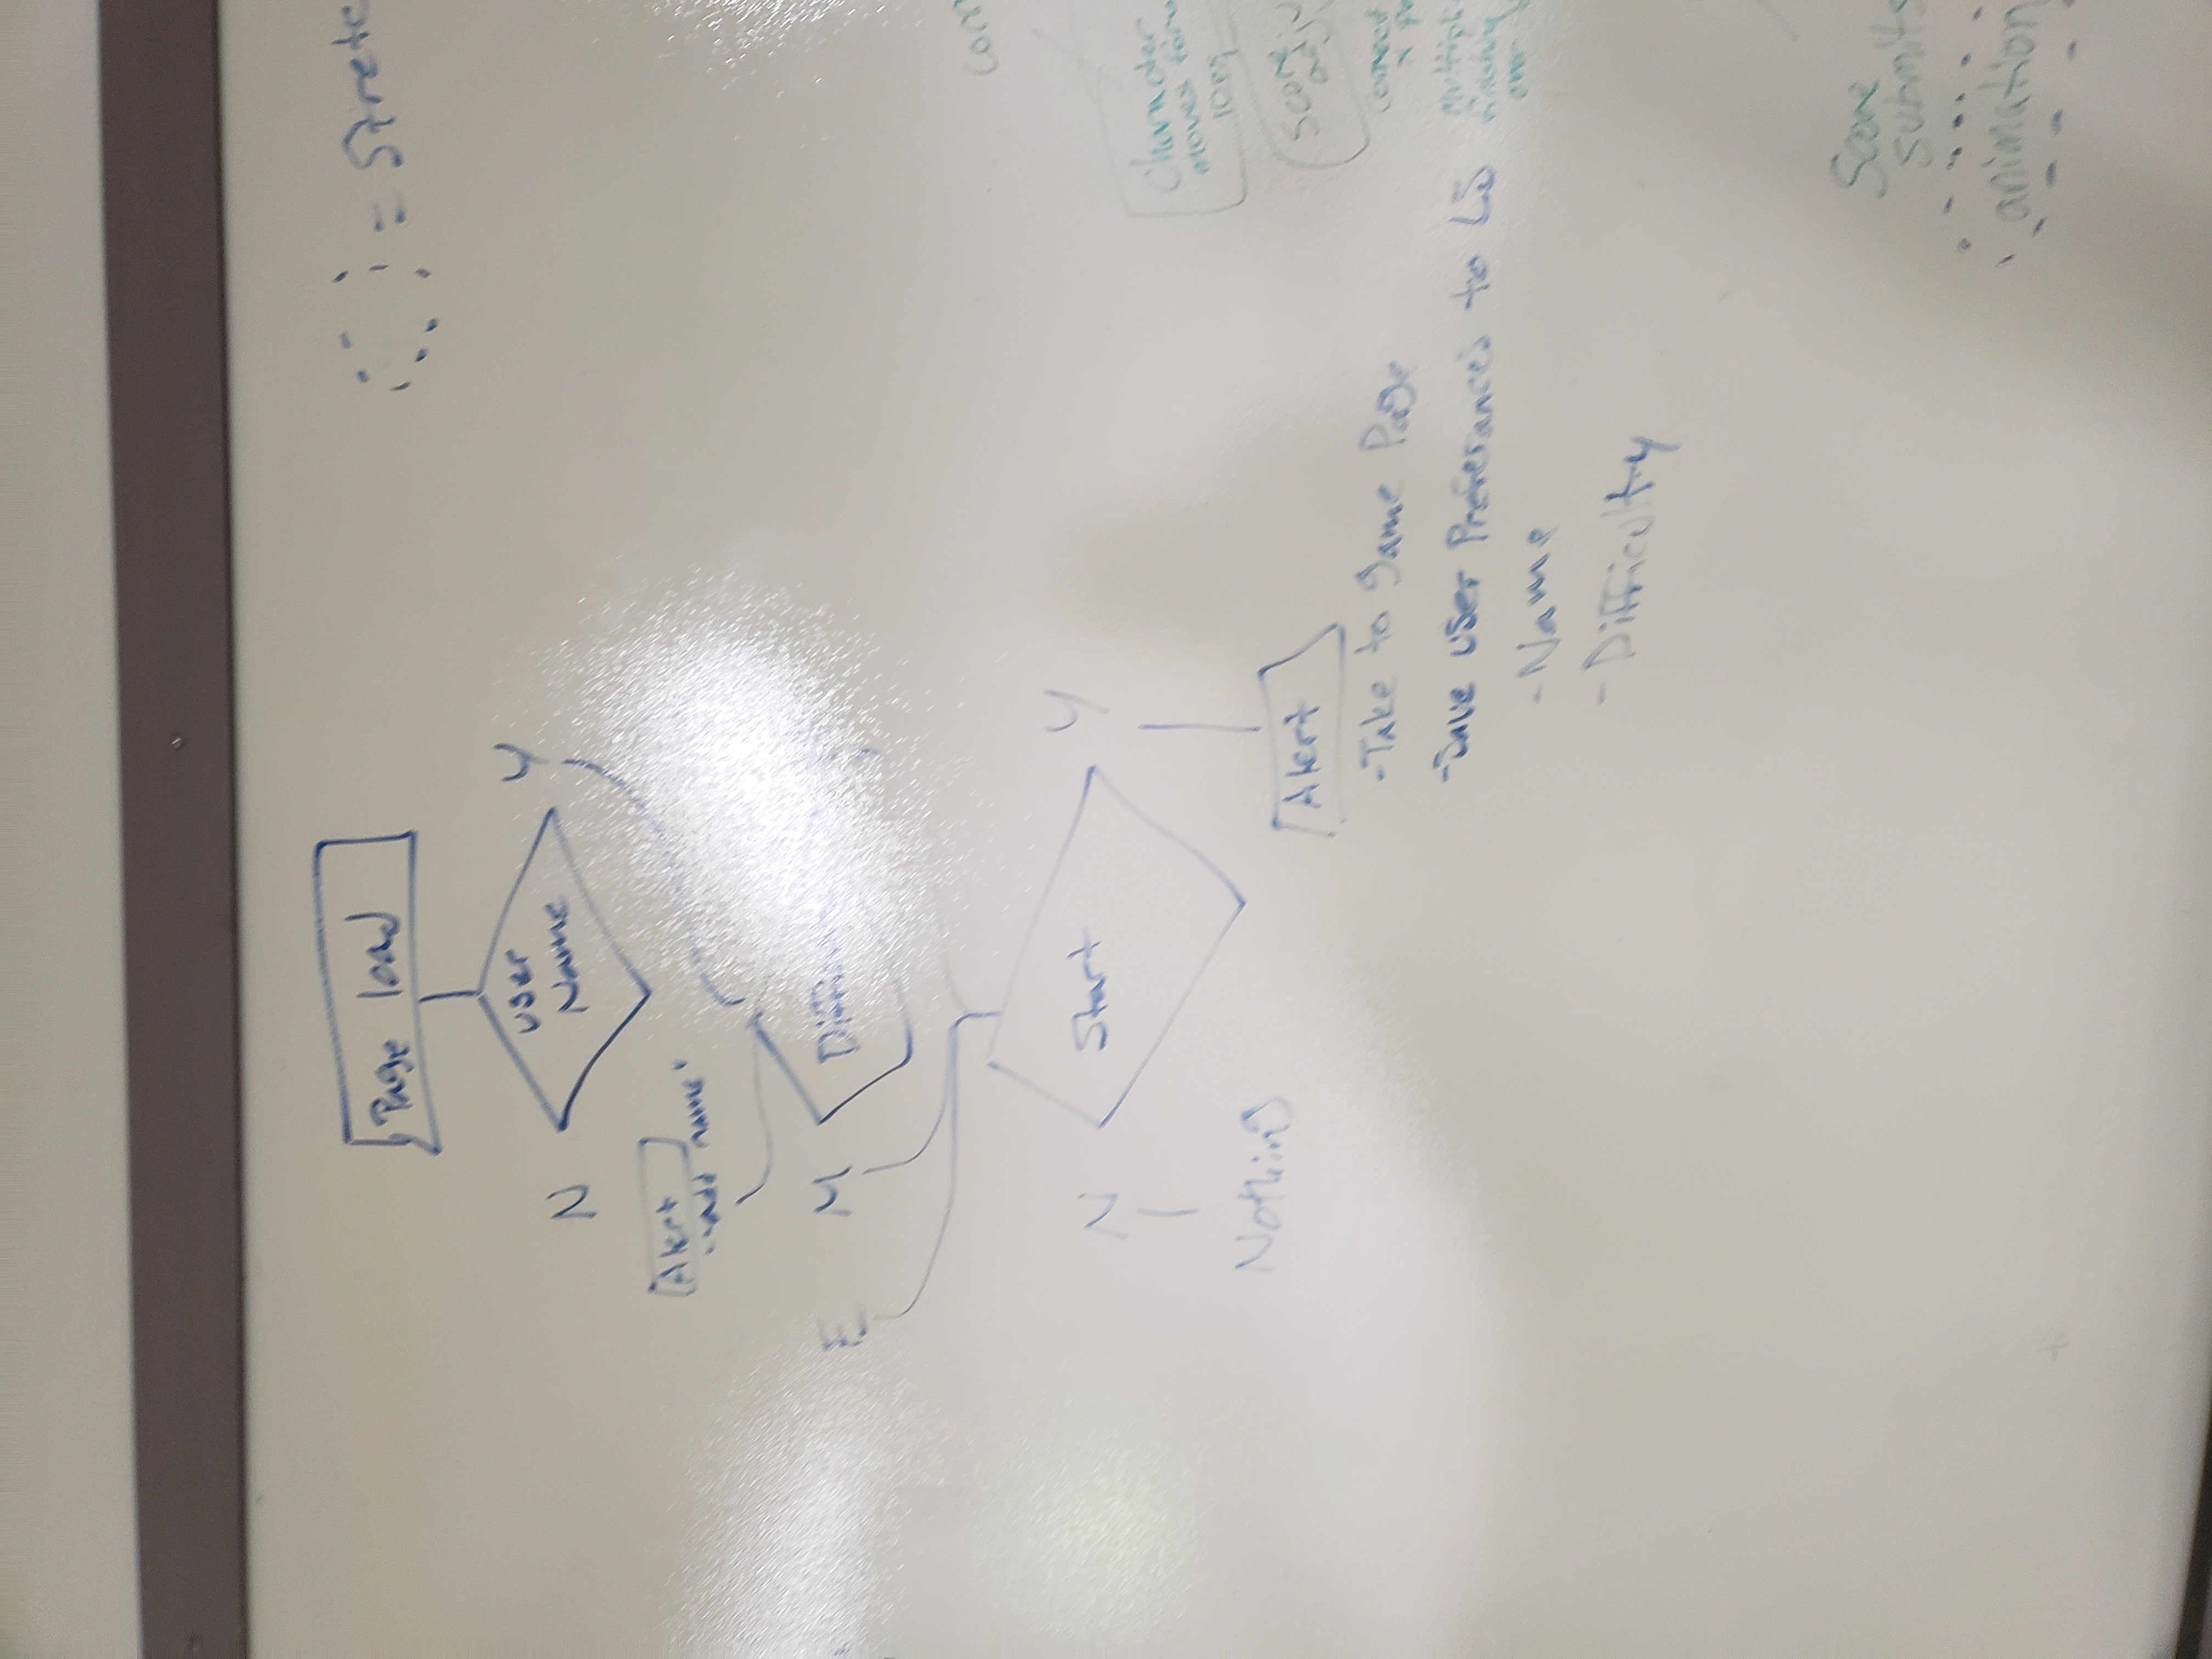 Page load
User
Name
N
Y
Alert
"add name"
E
M
Start
N
Y
Nothing
Alert
-Take to game Page
-Save user Preferances to LS
-Name
-Difficulty
= Stretc
Character
moves
Score
Correct
Score
submits
animation